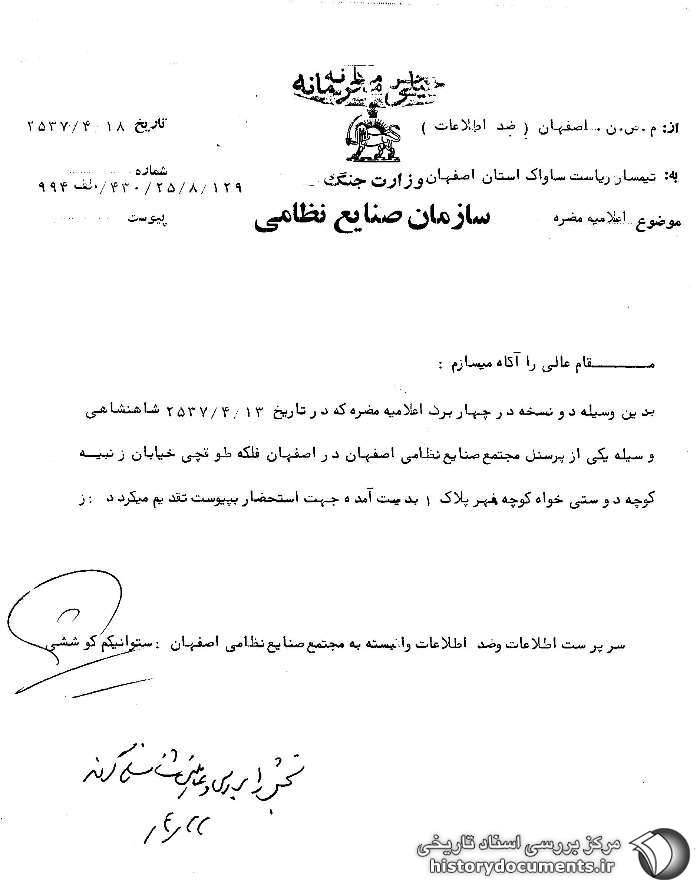 خیلی محرمانه
از: م.ص.ن. اصفهان ( ضد اطلاعات )
تاریخ ۲۵۳۷/۴/۱۸
به: تیمسار ریاست ساواک استان اصفهان
وزارت جنگ
شماره ۱۲۹/۸/۲۵/۴۳۰/الف ۹۹۴
موضوع اعلامیه مضره
سازمان صنایع نظامی
پیوست
مقام عالی را آگاه میسازم :
بدین وسیله دو نسخه در چهار برگ اعلامیه مضره که در تاریخ ۲۵۳۷/۴/۱۳ شاهنشاهی
وسیله یکی از پرسنل مجتمع صنایع نظامی اصفهان در اصفهان فلکه طوقچی خیابان زنبیه
کوچه دوستی خواه کوچه فهر پلاک ۱ بدست آمده جهت استحضار بپیوست تقدیم میگردد :ز
سرپرست اطلاعات وضد اطلاعات وابسته به مجتمع صنایع نظامی اصفهان : ستوانیکم کوششی
بخش ۱ بررسی و شناسائی گردد
۴/۲۲
مرکز بررسی اسناد تاریخی
historydocuments.ir